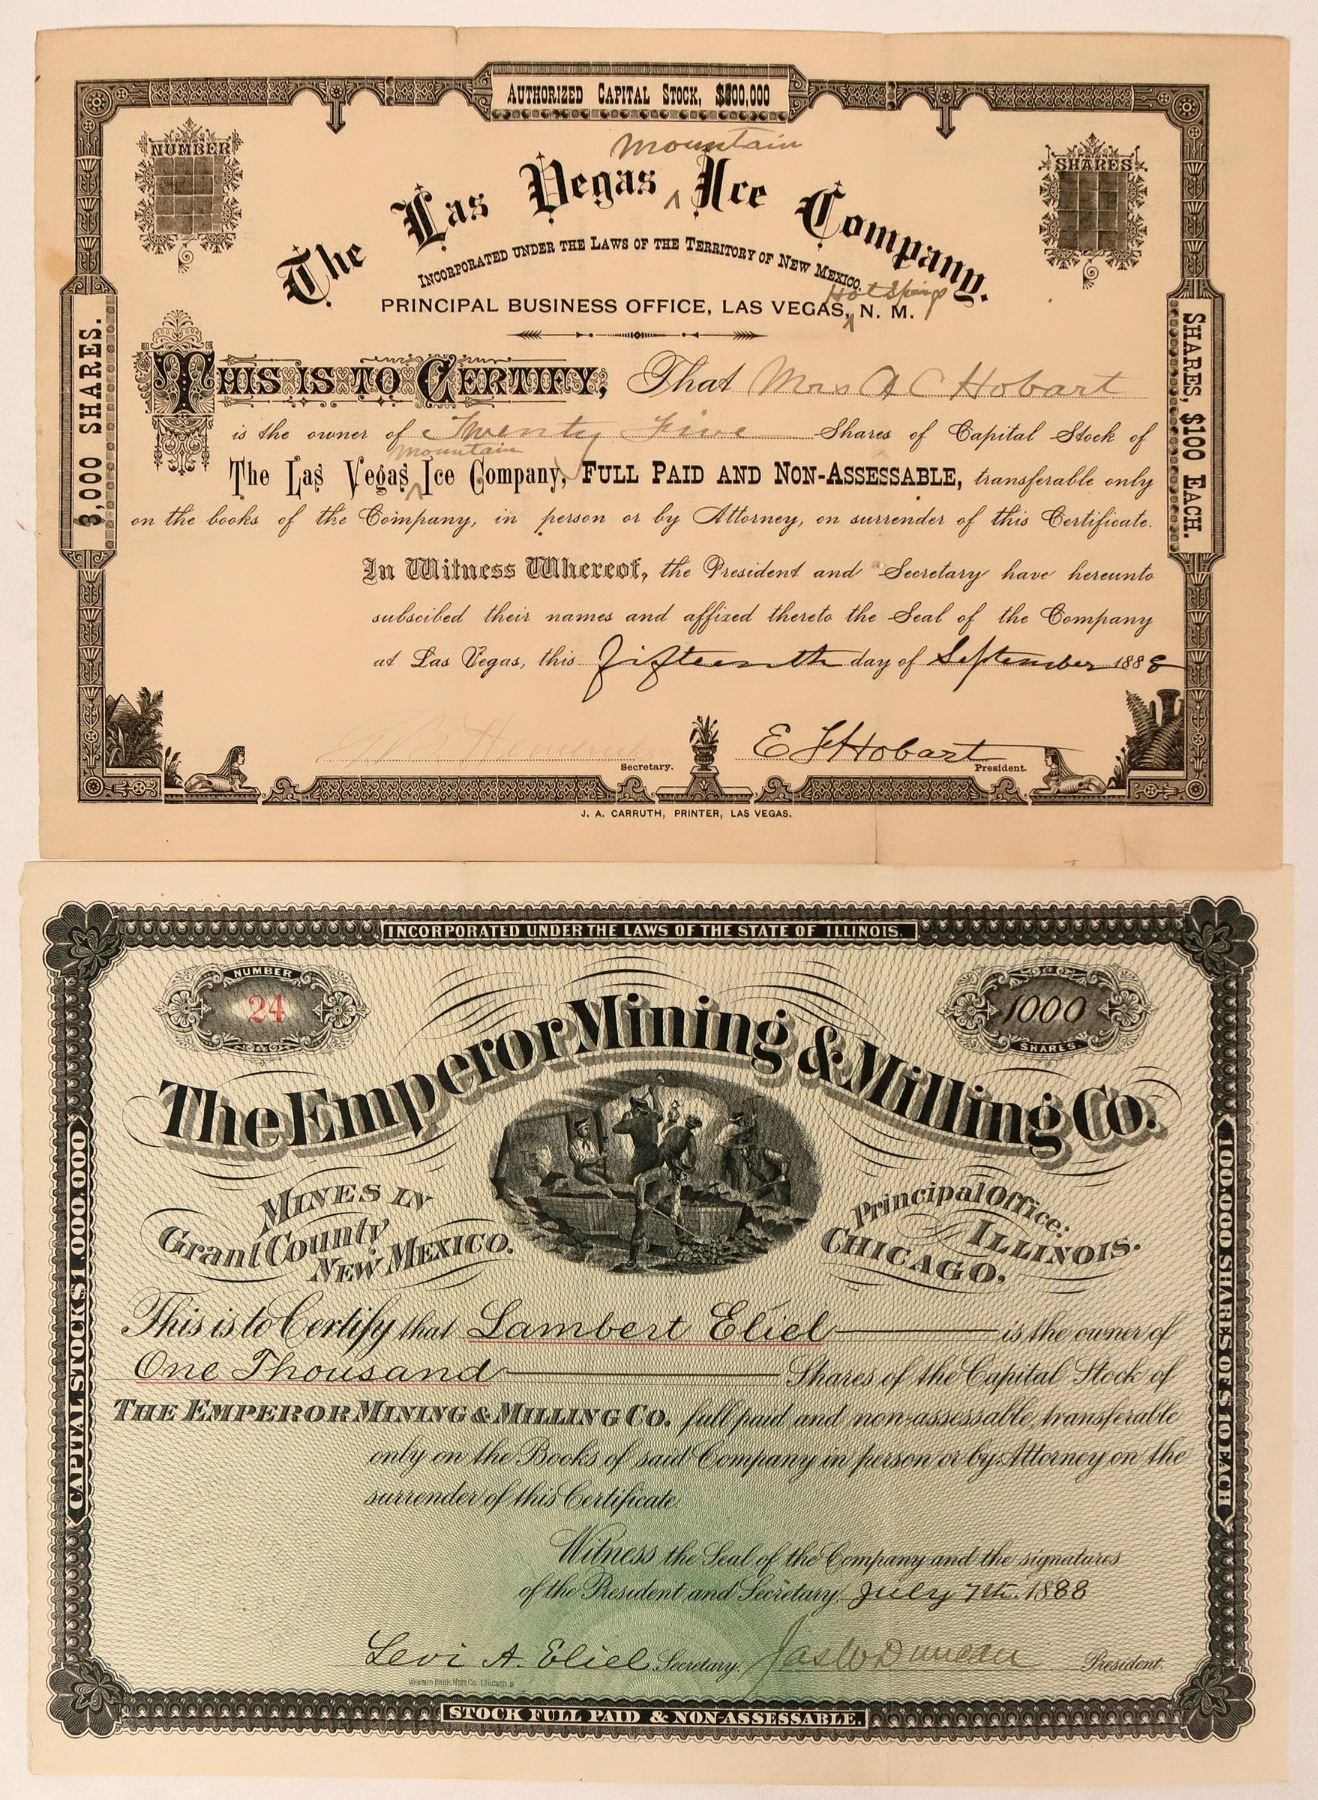 AUTHORIZED CAPITAL STOCK, $300,000
NUMBER
SHARES
mountain
The Las Vegas ^ Ice Company.
INCORPORATED UNDER THE LAWS OF THE TERRITORY OF NEW MEXICO.
Hot Springs
PRINCIPAL BUSINESS OFFICE, LAS VEGAS, ^ N. M.
THIS IS TO CERTIFY, That Mrs A C Hobart
is the owner of Twenty Five Shares of Capital Stock of
mountain
The Las Vegas ^ Ice Company, FULL PAID AND NON-ASSESSABLE, transferable only
on the books of the Company, in person or by Attorney, on surrender of this Certificate.
In Witness Whereof, the President and Secretary have hereunto
subscibed their names and affixed thereto the Seal of the Company
at Las Vegas, this Fifteenth day of September 1888
3,000 SHARES.
SHARES, $100 EACH.
E F Hobart
Secretary.
President.
J. A. CARRUTH, PRINTER, LAS VEGAS.
INCORPORATED UNDER THE LAWS OF THE STATE OF ILLINOIS.
NUMBER
24
1000
SHARES
The Emperor Mining & Milling Co.
MINES IN
Grant County
NEW MEXICO.
Principal Office:
CHICAGO, ILLINOIS.
This is to Certify that Lambert Eliel is the owner of
One Thousand Shares of the Capital Stock of
THE EMPEROR MINING & MILLING CO. full paid and non-assessable, transferable
only on the Books of said Company in person or by Attorney on the
surrender of this Certificate.
Witness the Seal of the Company and the signatures
of the President and Secretary, July 7th. 1888
Levi A. Eliel Secretary. Jas W Duncan President.
CAPITAL STOCK $1,000,000
100,000 SHARES OF $10 EACH
STOCK FULL PAID & NON-ASSESSABLE.